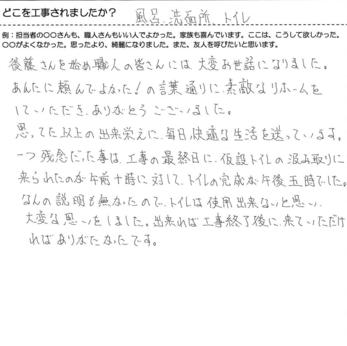 どこを工事されましたか？ 風呂、洗面所、トイレ
例：担当者の〇〇さんも、職人さんもいい人でよかった。家族も喜んでいます。ここは、こうして欲しかった。
〇〇がよくなかった。思ったより、綺麗になりました。また、友人を呼びたいと思います。
後藤さんを始め職人の皆さんには大変お世話になりました。
あんたに頼んでよかた！の言葉通りに、素敵なリホームを
していただき、ありがとうございました。
思ってた以上の出来栄えに、毎日、快適な生活を送っています。
一つ残念だった事は、工事の最終日に、仮設トイレの汲み取りに
来られたのが午前十時に対して、トイレの完成が午後五時でした。
なんの説明も無かったので、トイレは使用出来ないと思い、
大変な思いをしました。出来れば工事終了後に、来ていただけ
ればありがたかたです。